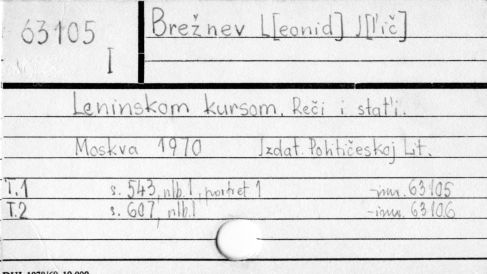 63105
I
Brežnev L[eonid] I[l'ič]
Leninskom kursom. Reči i stat'i.
Moskva 1970 Izdat. Političeskoj Lit.
T.1 s. 543, nlb.1, portret 1 -inv. 63105
T.2 s. 607, nlb.1 -inv. 63106